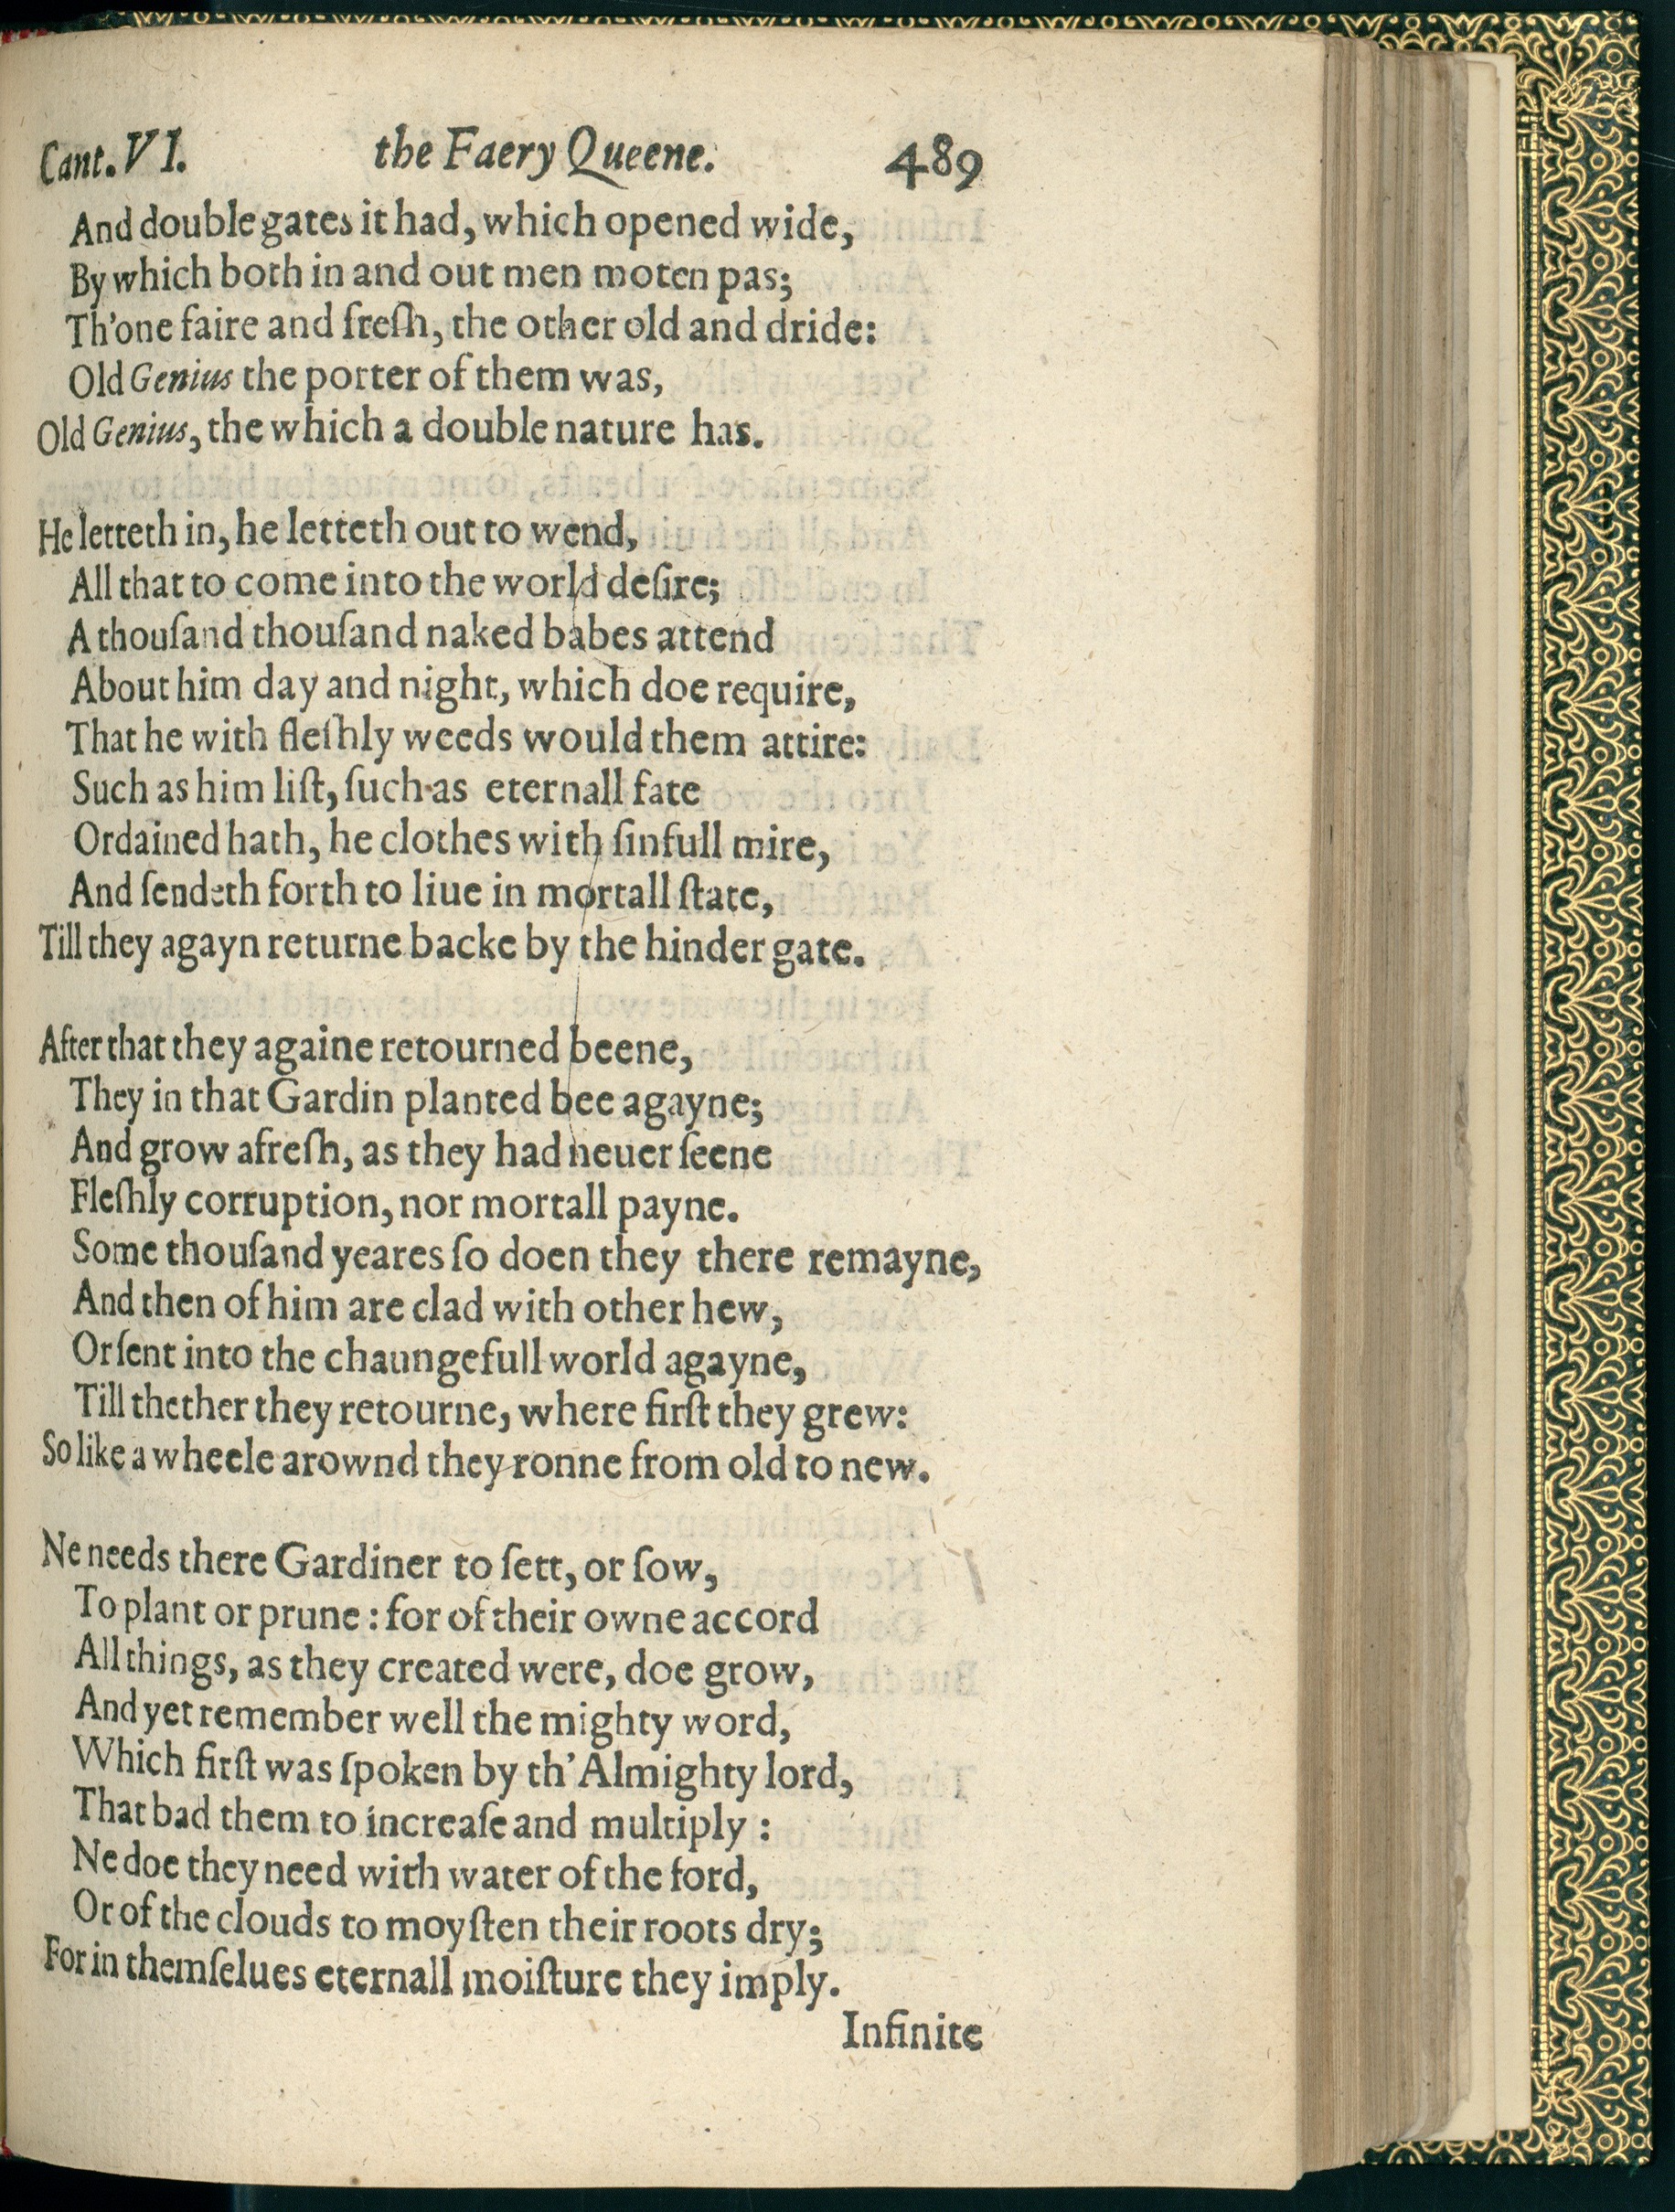 Cant.VI. the Faery Queene. 489
And double gates it had, which opened wide,
By which both in and out men moten pas;
Th'one faire and freſh, the other old and dride:
Old Genius the porter of them was,
Old Genius, the which a double nature has.
He letteth in, he letteth out to wend,
All that to come into the world deſire;
A thouſand thouſand naked babes attend
About him day and night, which doe require,
That he with fleſhly weeds would them attire:
Such as him liſt, ſuch as eternall fate
Ordained hath, he clothes with ſinfull mire,
And ſendeth forth to liue in mortall ſtate,
Till they agayn returne backe by the hinder gate.
After that they againe retourned beene,
They in that Gardin planted bee agayne;
And grow afreſh, as they had neuer ſeene
Fleſhly corruption, nor mortall payne.
Some thouſand yeares ſo doen they there remayne,
And then of him are clad with other hew,
Or ſent into the chaungefull world agayne,
Till thether they retourne, where firſt they grew:
So like a wheele arownd they ronne from old to new.
Ne needs there Gardiner to ſett, or ſow,
To plant or prune : for of their owne accord
All things, as they created were, doe grow,
And yet remember well the mighty word,
Which firſt was ſpoken by th'Almighty lord,
That bad them to increaſe and multiply :
Ne doe they need with water of the ford,
Or of the clouds to moyſten their roots dry;
For in themſelues eternall moiſture they imply.
Infinite